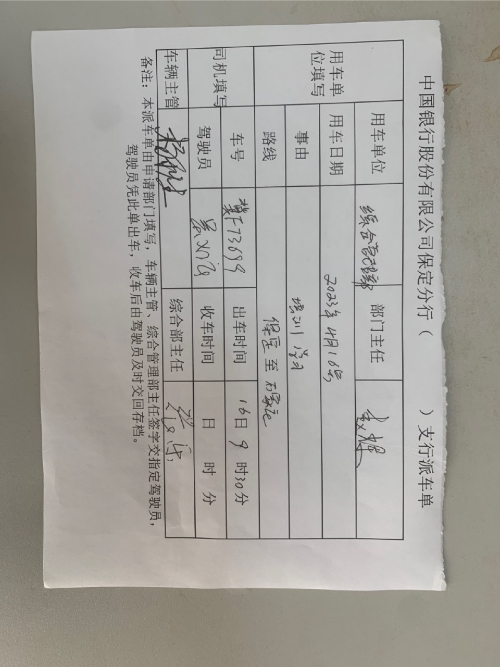 中国银行股份有限公司保定分行（ ）支行派车单
用车单位填写 用车单位 综合管理部 部门主任
用车日期 2023年4月16号
事由 培训学习
路线 保定至石家庄
司机填写 车号 冀F73699 出车时间 16日9时30分
驾驶员 收车时间 日 时 分
车辆主管 综合部主任
备注：本派车单由申请部门填写，车辆主管、综合管理部主任签字交指定驾驶员，
驾驶员凭此单出车，收车后由驾驶员及时交回存档。